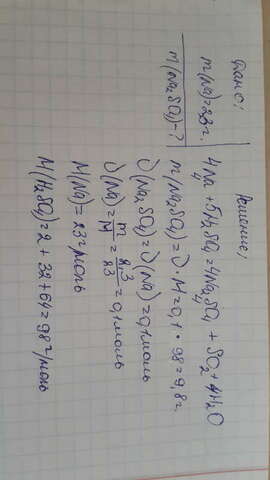 Дано:
m(Na)=2,3г.
m(Na₂SO₄)-?
Решение;
4Na+5H₂SO₄=4Na₂SO₄ + SO₂+4H₂O
m(Na₂SO₄)=υ·M=0,1·98=9,8г.
υ(Na₂SO₄)=υ(Na)=0,1моль
υ(Na)=m/M=2,3/23=0,1моль
M(Na)=23г/моль
M(H₂SO₄)=2+32+64=98г/моль